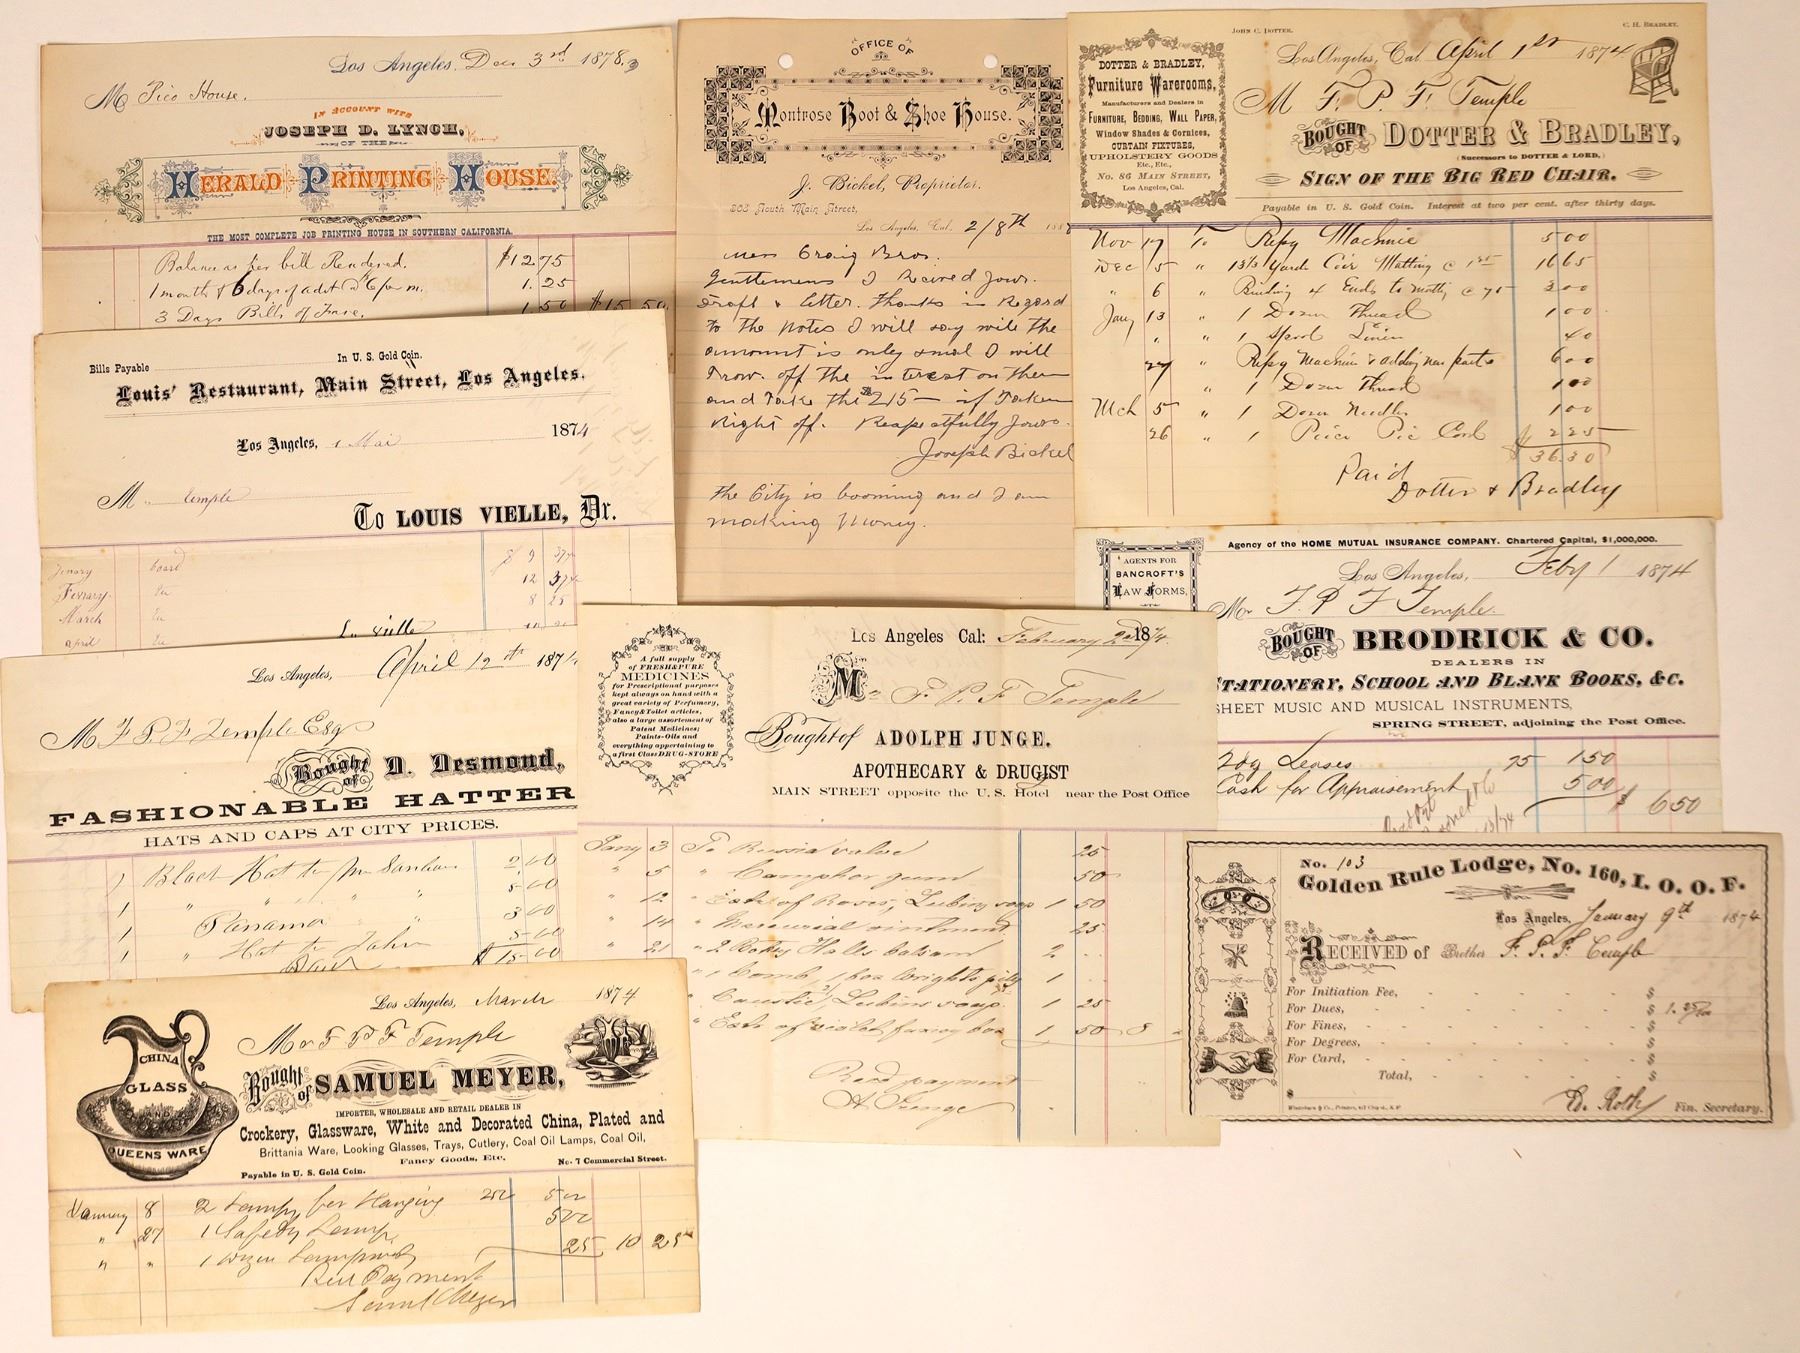 Los Angeles, Dec 3rd 1878.
M Pico House.
IN ACCOUNT WITH
JOSEPH D. LYNCH,
OF THE
HERALD PRINTING HOUSE.
THE MOST COMPLETE JOB PRINTING HOUSE IN SOUTHERN CALIFORNIA.
Balance as per bill Rendered. $12 75
1 month & 6 days of 1. 25
3 Days Bills of Fare. 1.50 $15 50
OFFICE OF
Montrose Boot & Shoe House.
J. Bickel, Proprietor.
203 South Main Street,
Los Angeles, Cal. 2/8th 188
Mess Craig Bros.
Gentlemens I Received yours.
Draft & letter. Thanks in Regard
to the Notes I will say wile the
ammount is only smal I will
Trow. off the interest on them
and Take the $215 — if Taken
Right off. Respectfully yours.
Joseph Bickel
The City is booming and I am
making Money.
JOHN C. DOTTER.
C. H. BRADLEY.
DOTTER & BRADLEY,
Furniture Warerooms,
Manufacturers and Dealers in
FURNITURE, BEDDING, WALL PAPER,
Window Shades & Cornices,
CURTAIN FIXTURES,
UPHOLSTERY GOODS
Etc., Etc.,
No. 86 MAIN STREET,
Los Angeles, Cal.
Los Angeles, Cal April 1st 1874
M F. P. F. Temple
BOUGHT OF DOTTER & BRADLEY,
(Successors to DOTTER & LORD,)
SIGN OF THE BIG RED CHAIR.
Payable in U. S. Gold Coin. Interest at two per cent. after thirty days.
Nov 17 To Repg Machine 5 00
Dec 5 " Yards Coir Matting @ 16 65
" 6 " Binding 4 Ends to Mattg @ 75 3 00
Jany 13 " 1 Dozen Thread 1 00
" " 1 Spool Linen 40
27 " Repg Machine & adding new parts 6 00
" 1 Dozen Thread 1 00
Mch 5 " 1 Dozen Needles 1 00
26 " 1 Piece Pic Cord 2 25
$ 36.30
Paid
Dotter & Bradley
Bills Payable In U. S. Gold Coin.
Louis' Restaurant, Main Street, Los Angeles.
Los Angeles, 1 Mai 1874
M Temple
To LOUIS VIELLE, Dr.
Jenary board $ 9 37
12 37
March 8 25
April
L. Vielle
Agency of the HOME MUTUAL INSURANCE COMPANY. Chartered Capital, $1,000,000.
AGENTS FOR
BANCROFT'S
LAW FORMS,
Los Angeles, Feby 1 1874
Mr F. P F Temple
BOUGHT OF BRODRICK & CO.
DEALERS IN
STATIONERY, SCHOOL AND BLANK BOOKS, &C.
SHEET MUSIC AND MUSICAL INSTRUMENTS,
SPRING STREET, adjoining the Post Office.
2 dg Leases 75 1 50
Cash for Appraisement 5 00 $ 6 50
Los Angeles, April 12th 187
M F. P. F. Temple Esq
Bought of D. Desmond,
FASHIONABLE HATTER
HATS AND CAPS AT CITY PRICES.
1 Black Hat
1 " " " " 5 00
1 Panama 3 00
1 " Hat to John 5 00
Paid $ 15 00
A full supply
of FRESH & PURE
MEDICINES
for Prescriptional purposes
kept always on hand with a
great variety of Perfumery,
Fancy & Toilet articles,
also a large assortement of
Patent Medicines;
Paints-Oils and
everything appertaining to
a first Class DRUG-STORE
Los Angeles Cal: February 2d 1874.
Mr F. P. F Temple
Bought of ADOLPH JUNGE.
APOTHECARY & DRUGIST
MAIN STREET opposite the U. S. Hotel near the Post Office
Jany 3 To Russia salve 25
" 5 " Camphor gum 50
" 12 " Extr of Roses, Lubins soap 1 50
" 14 " Mercurial ointment 25
" 21 " 2 Halls balsam 2
" 1 Comb, 1 box Wrights pills 1
" Caustic, Lubins soap 1 25
" Extr of violet fancy box 1 50
Recd payment
A. Junge
No. 103
Golden Rule Lodge, No. 160, I. O. O. F.
Los Angeles, January 9th 1874
RECEIVED of Brother F. P. F. Temple
For Initiation Fee, $
For Dues, $ 1.25
For Fines, $
For Degrees, $
For Card, $
Total, $
$
D. Roth Fin. Secretary.
Los Angeles, March 1874
CHINA
GLASS
AND
QUEENS WARE
Mr F P F Temple
Bought of SAMUEL MEYER,
IMPORTER, WHOLESALE AND RETAIL DEALER IN
Crockery, Glassware, White and Decorated China, Plated and
Brittania Ware, Looking Glasses, Trays, Cutlery, Coal Oil Lamps, Coal Oil,
Fancy Goods, Etc.
Payable in U. S. Gold Coin. No. 7 Commercial Street.
January 8 2 Lamps for Hanging 5
" 27 1 Safety Lamp 5
" " 1 25 10 25
Rec Payment
Saml Meyer